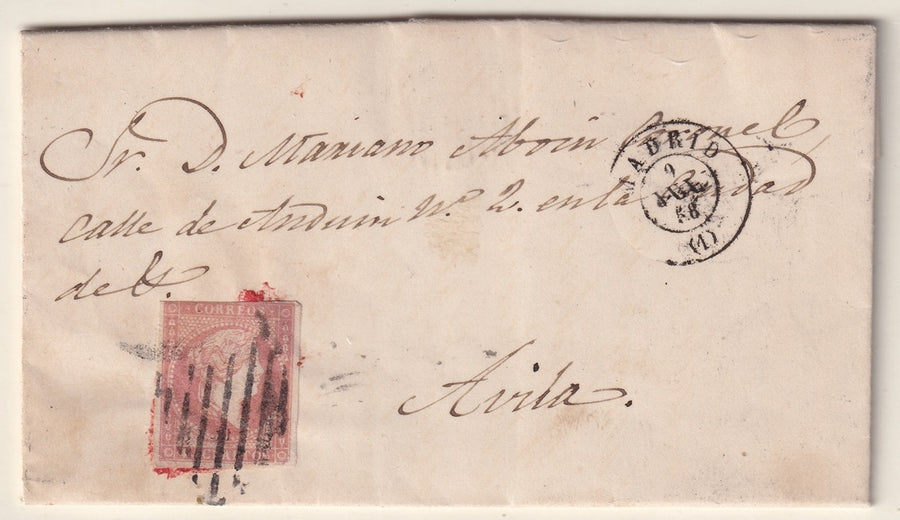 Sr. D. Mariano Aboin Coronel,
calle de Anduin Nº 2. en la Ciudad
de
Avila.
MADRID
9
JUL
(1)
CORREOS